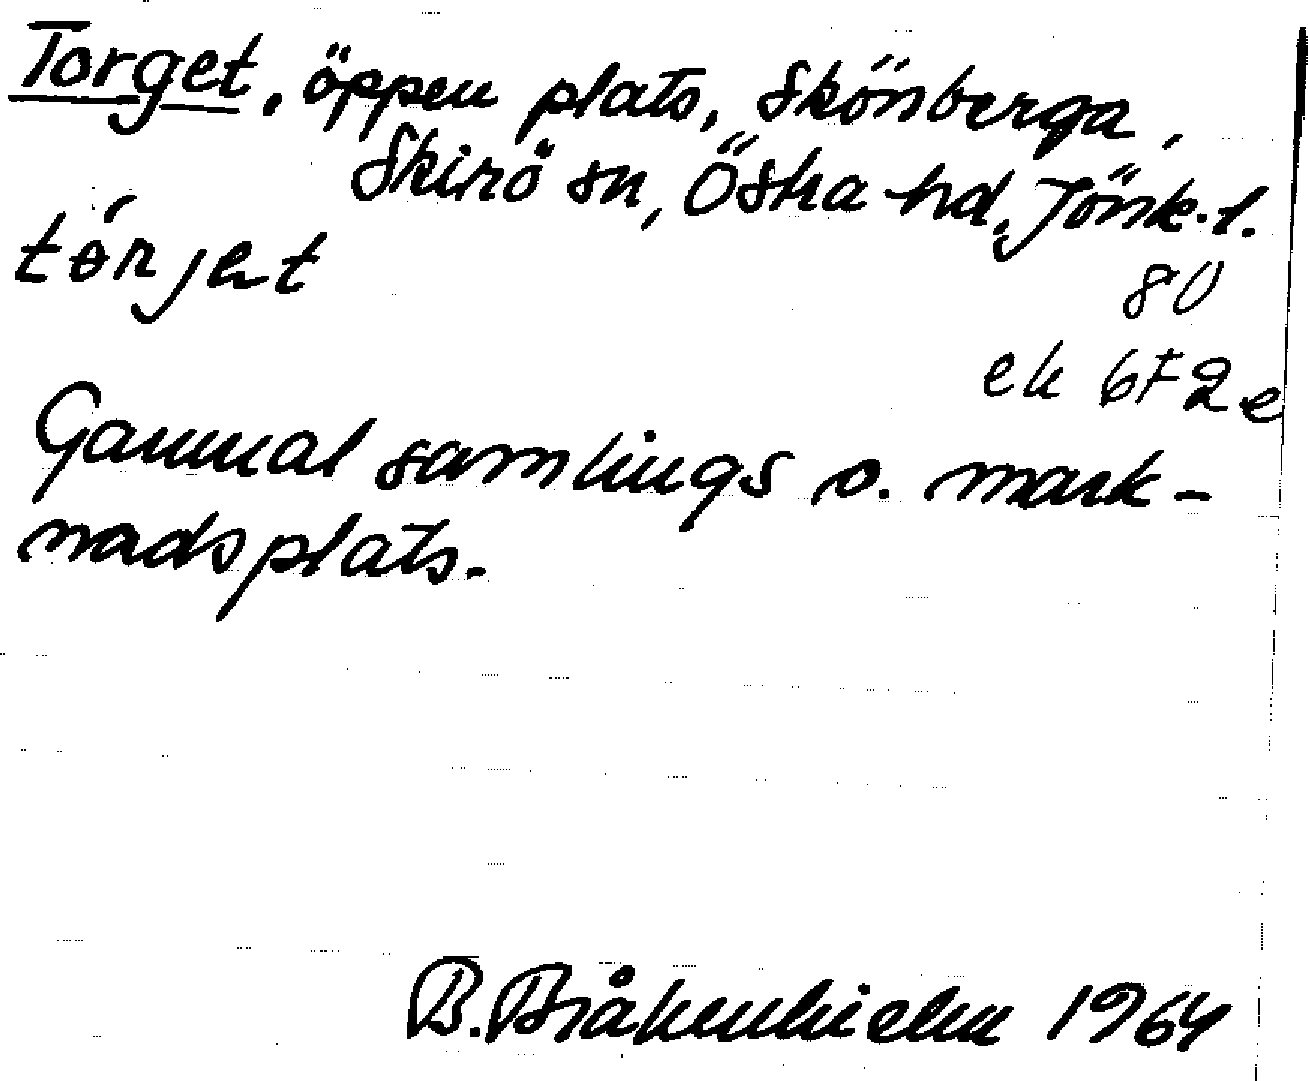 Torget, öppen plats, Skönberga,
Skirö sn, Östra hd, Jönk. l.
tórjet
80
ek 6F2e
Gammal samlings o. mark-
nadsplats.
B. Bråkenhielm 1964